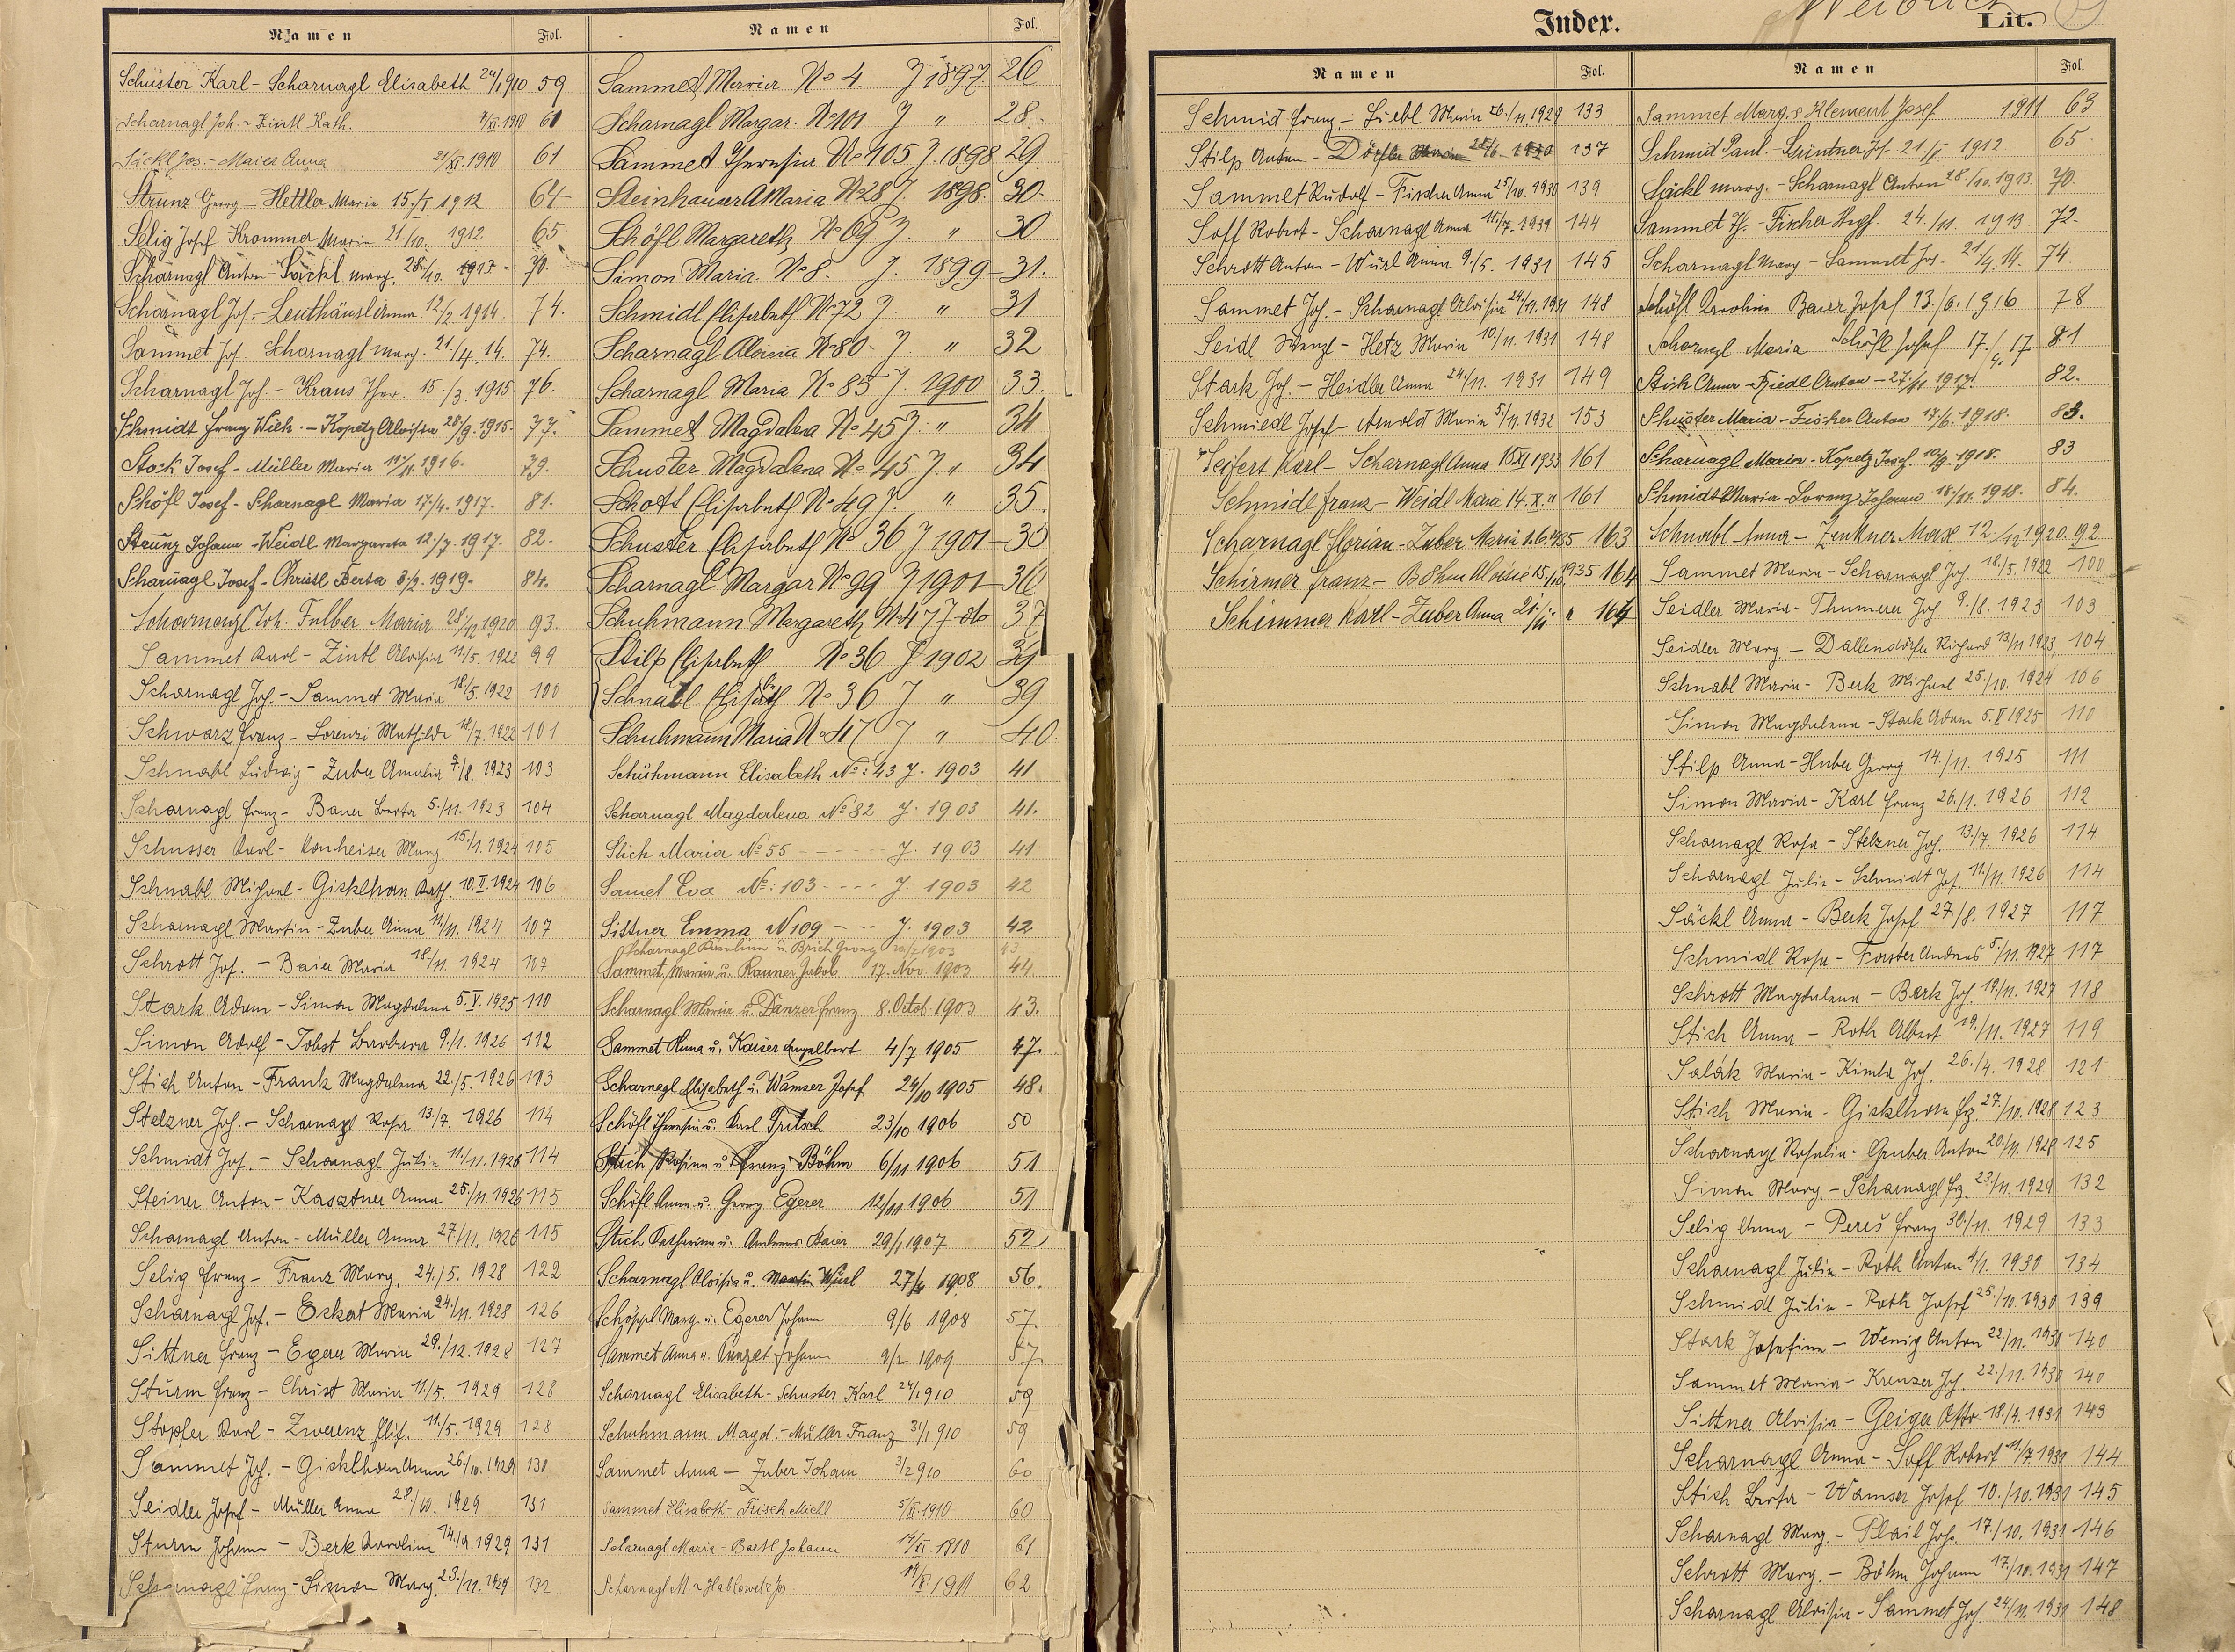 Namen Fol.
Schuster Karl - Scharnagl Elisabeth 24/1 910 59
Scharnagl Joh. - Zintl Kath. 7/XI. 1910 61
Säckl Jos. - Maier Anna 21/XI. 1910 61
Strunz Georg - Hettler Maria 15./I 1912 64
Selig Josef Krommer Maria 21./10. 1912 65
Scharnagl Anton - Säckl marg. 28./10. 1913 70.
Scharnagl Jos. - Leuthäusl Anna 12/2. 1914 74.
Sammet Jos Scharnagl marg. 21/4. 14. 74.
Scharnagl Joh. - Kraus Ther. 15./3. 1915. 76.
Schmidt Franz Wilh. - Kopetz Aloisia 28/9. 1915. 77.
Stock Josef - Müller Maria 14/11. 1916. 79.
Schöfl Josef - Scharnagl Maria 17./4. 1917. 81.
Strunz Johann - Weidl Margareta 12./7. 1917. 82.
Scharnagl Josef - Christl Berta 3./2. 1919. 84.
Scharnagl Joh. Fulber Maria 28/12 1920 93.
Sammet Karl - Zintl Aloisia 11/5. 1922 99
Scharnagl Joh. - Sammet Maria 18/5. 1922 100
Schwarz Franz - Lorenzi Mathilde 18/7. 1922 101
Schnabl Ludwig - Zuber Amalia 7/8. 1923 103
Scharnagl Franz - Bauer Berta 5./11. 1923 104
Schusser Karl - Konheiser Marg. 15./1. 1924 105
Schnabl Michael - Gisklhorn Kath. 10. II. 1924 106
Scharnagl Martin - Zuber Anna 11/11. 1924 107
Schrott Jos. - Baier Maria 18./11. 1924 107
Stark Adam - Simon Magdalena 5. V. 1925 110
Simon Adolf - Jobst Barbara 9./1. 1926 112
Stich Anton - Frank Magdalena 22./5. 1926 113
Stelzner Joh. - Scharnagl Rosa 13./7. 1926 114
Schmidt Jos. - Scharnagl Julie 11./11. 1926 114
Steiner Anton - Kasztner Anna 25./11. 1926 115
Scharnagl Anton - Müller Anna 27./11. 1926 115
Selig Franz - Franz Marg. 24./5. 1928 122
Scharnagl Jos. - Eckert Maria 24./11. 1928 126
Sittner Franz - Egerer Maria 29./12. 1928 127
Sturm Franz - Christ Maria 11/5. 1929 128
Stopfer Karl - Zwerenz Elis. 11./5. 1929 128
Sammet Joh. - Gisklhorn Anna 26./10. 1929 130
Seidler Josef - Müller Anna 28./10. 1929 131
Sturm Johann - Berk Karoline 14./11. 1929 131
Scharnagl Franz - Simon Marg. 23./11. 1929 132
Namen Fol.
Sammet Maria No 4. J 1897. 26
Scharnagl Margar. No 101. J " 28.
Sammet Theresia No 105 J. 1898 29
Steinhauser A Maria No 28 J. 1898. 30.
Schöfl Margareth No 69 J " 30
Simon Maria. No 8. J. 1899 - 31.
Schmidl Elisabeth No 72 J. " 31
Scharnagl Aloisia No 80 J " 32
Scharnagl Maria No 85 J. 1900 33.
Sammet Magdalena No 45 J. " 34
Schuster Magdalena No 45 J. " 34
Schott Elisabeth No 49 J. " 35.
Schuster Elisabeth No 36 J 1901 - 35
Scharnagl Margar No 99 J 1901 - 36
Schuhmann Margareth No 47 J dto 37
Stilp Elisabeth No 36 J 1902 39
Schnabl Elisabeth No 36 J " 39
Schuhmann Maria No 47 J " 40.
Schuhmann Elisabeth No: 43 J. 1903 41
Scharnagl Magdalena No 82 J. 1903 41.
Stich Maria No 55 ------ J. 1903 41
Samet Eva No: 103 ---- J. 1903 42
Sittner Emma N 109 --- J. 1903 42
Scharnagl Karoline u. Brich Georg 1903 43
Sammet Maria u. Rauner Jakob 17. Nov. 1903 44.
Scharnagl Maria u. Danzer Franz 8. Octob 1903 43.
Sammet Anna u. Kaiser Engelbert 4/7 1905 47.
Scharnagl Elisabeth u. Wamser Josef 24/10 1905 48.
Schöfl Theresia u. Karl Tritsch 23/10 1906 50
Stich Rosina u Franz Böhm 6/11 1906 51
Schöfl Anna u. Georg Egerer 12/11 1906 51
Stich Katharina u. Andreas Baier 29/1 1907 52
Scharnagl Aloisia u. Martin Würl 27/4 1908 56.
Schöppl Marg. u. Egerer Johann 9/6 1908 57.
Sammet Anna u. Johann 9/2 1909 57.
Scharnagl Elisabeth - Schuster Karl 24/1 910 59
Schuhmann Magd. - Müller Franz 31/1 910 59
Sammet Anna - Zuber Johann 3/2 910 60
Sammet Elisabeth - Frisch Michl 5/XI. 1910 60
Scharnagl Maria - Bartl Johann 14/XI. 1910 61
Scharnagl M. - Hablowetz Jos 14/I 1911 62
Index. Lit.
Namen Fol.
Schmid Franz - Liebl Maria 26./11. 1929 133
Stilp Anton - Dörfler Maria 28/6. 1930 137
Sammet Rudolf - Fischer Anna 25/10. 1930 139
Soff Robert - Scharnagl Anna 11./7. 1931 144
Schrott Anton - Würl Anna 9./5. 1931 145
Sammet Jos. - Scharnagl Aloisia 24/11. 1931 148
Seidl Wenzl - Hetz Maria 10/11. 1931 148
Stark Jos. - Heidler Anna 24/11. 1931 149
Schmiedl Josef - Arnold Maria 5/11. 1932 153
Seifert Karl - Scharnagl Anna 15 XI 1933 161
Schmidl Franz - Weidl Maria 14. X. " 161
Scharnagl Florian - Zuber Maria 1. 6. 1935 163
Schirmer Franz - Böhm Aloisie 15/10. 1935 164
Schimmer Karl - Zuber Anna 21/11 " 164
Namen Fol.
Sammet Marg. & Klement Josef 1911 63
Schmid Paul. - Grüntner Jos. 21/I 1912 65
Säckl marg. - Scharnagl Anton 28/10. 1913. 70.
Sammet Th. - Fischer Augs. 24./11. 1913 72.
Scharnagl Marg - Sammet Jos. 21/4. 14. 74
Schöfl Karoline Baier Josef 13./6. 1916 78
Scharnagl Maria Schöfl Josef 17./4. 17 81
Stich Anna - Riedl Anton - 27/11. 1917. 82.
Schuster Maria - Fischer Anton 17/6. 1918. 83.
Scharnagl Maria - Kopetz Josef. 10/9. 1918. 83
Schmidt Maria - Lorenz Johann 18./11. 1918. 84.
Schnabl Anna - Zenkner Max 12/12 1920. 92
Sammet Maria - Scharnagl Joh. 18./5. 1922 100
Seidler Maria - Thumerer Jos. 9./8. 1923 103
Seidler Marg. - Dallendörfer Richard 13/11 1923, 104
Schnabl Maria - Berk Michael 25./10. 1924 106
Simon Magdalena - Stark Adam 5. V 1925 110
Stilp Anna - Huber Georg 14./11. 1925 111
Simon Maria - Karl Franz 26./1. 1926 112
Scharnagl Rosa - Stelzner Joh. 13./7. 1926 114
Scharnagl Julie - Schmidt Jos. 11./11. 1926 114
Säckl Anna - Berk Josef 27./8. 1927 117
Schmidl Rosa - Forster Andreas 5./11. 1927 117
Schrott Magdalena - Berk Jos. 19/11. 1927 118
Stich Anna - Roth Albert 19./11. 1927 119
Salák Maria - Kimla Jos. 26./4. 1928 121
Stich Maria - Gisklhorn Frz. 27./10. 1928 123
Scharnagl Rosalia - Gruber Anton 20/11. 1928 125
Simon Marg. - Scharnagl Frz. 23./11. 1929 132
Selig Anna - Pereš Franz 30/11. 1929 133
Scharnagl Julie - Roth Anton 4/1. 1930 134
Schmidl Julie - Roth Josef 25./10. 1930 139
Stark Josefine - Wenig Anton 22./11. 1930 140
Sammet Maria - Kreuzer Jos. 22./11. 1930 140
Sittner Aloisia - Geiger Otto 18./4. 1931 143
Scharnagl Anna - Soff Robert 11./7. 1931 144
Stich Berta - Wamser Josef 10./10. 1931 145
Scharnagl Marg. - Plail Joh. 17./10. 1931 146
Schrott Marg. - Böhm Johann 17/10. 1931 147
Scharnagl Aloisia - Sammet Jos. 24/11. 1931 148